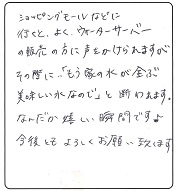 ショッピングモールなどに
行くと、よく、ウォーターサーバー
の販売の方に声をかけられますが
その際に、「もう家の水が全ぶ
美味しい水なので」と断われます。
なんだか嬉しい瞬間です♪
今後ともよろしくお願い致します